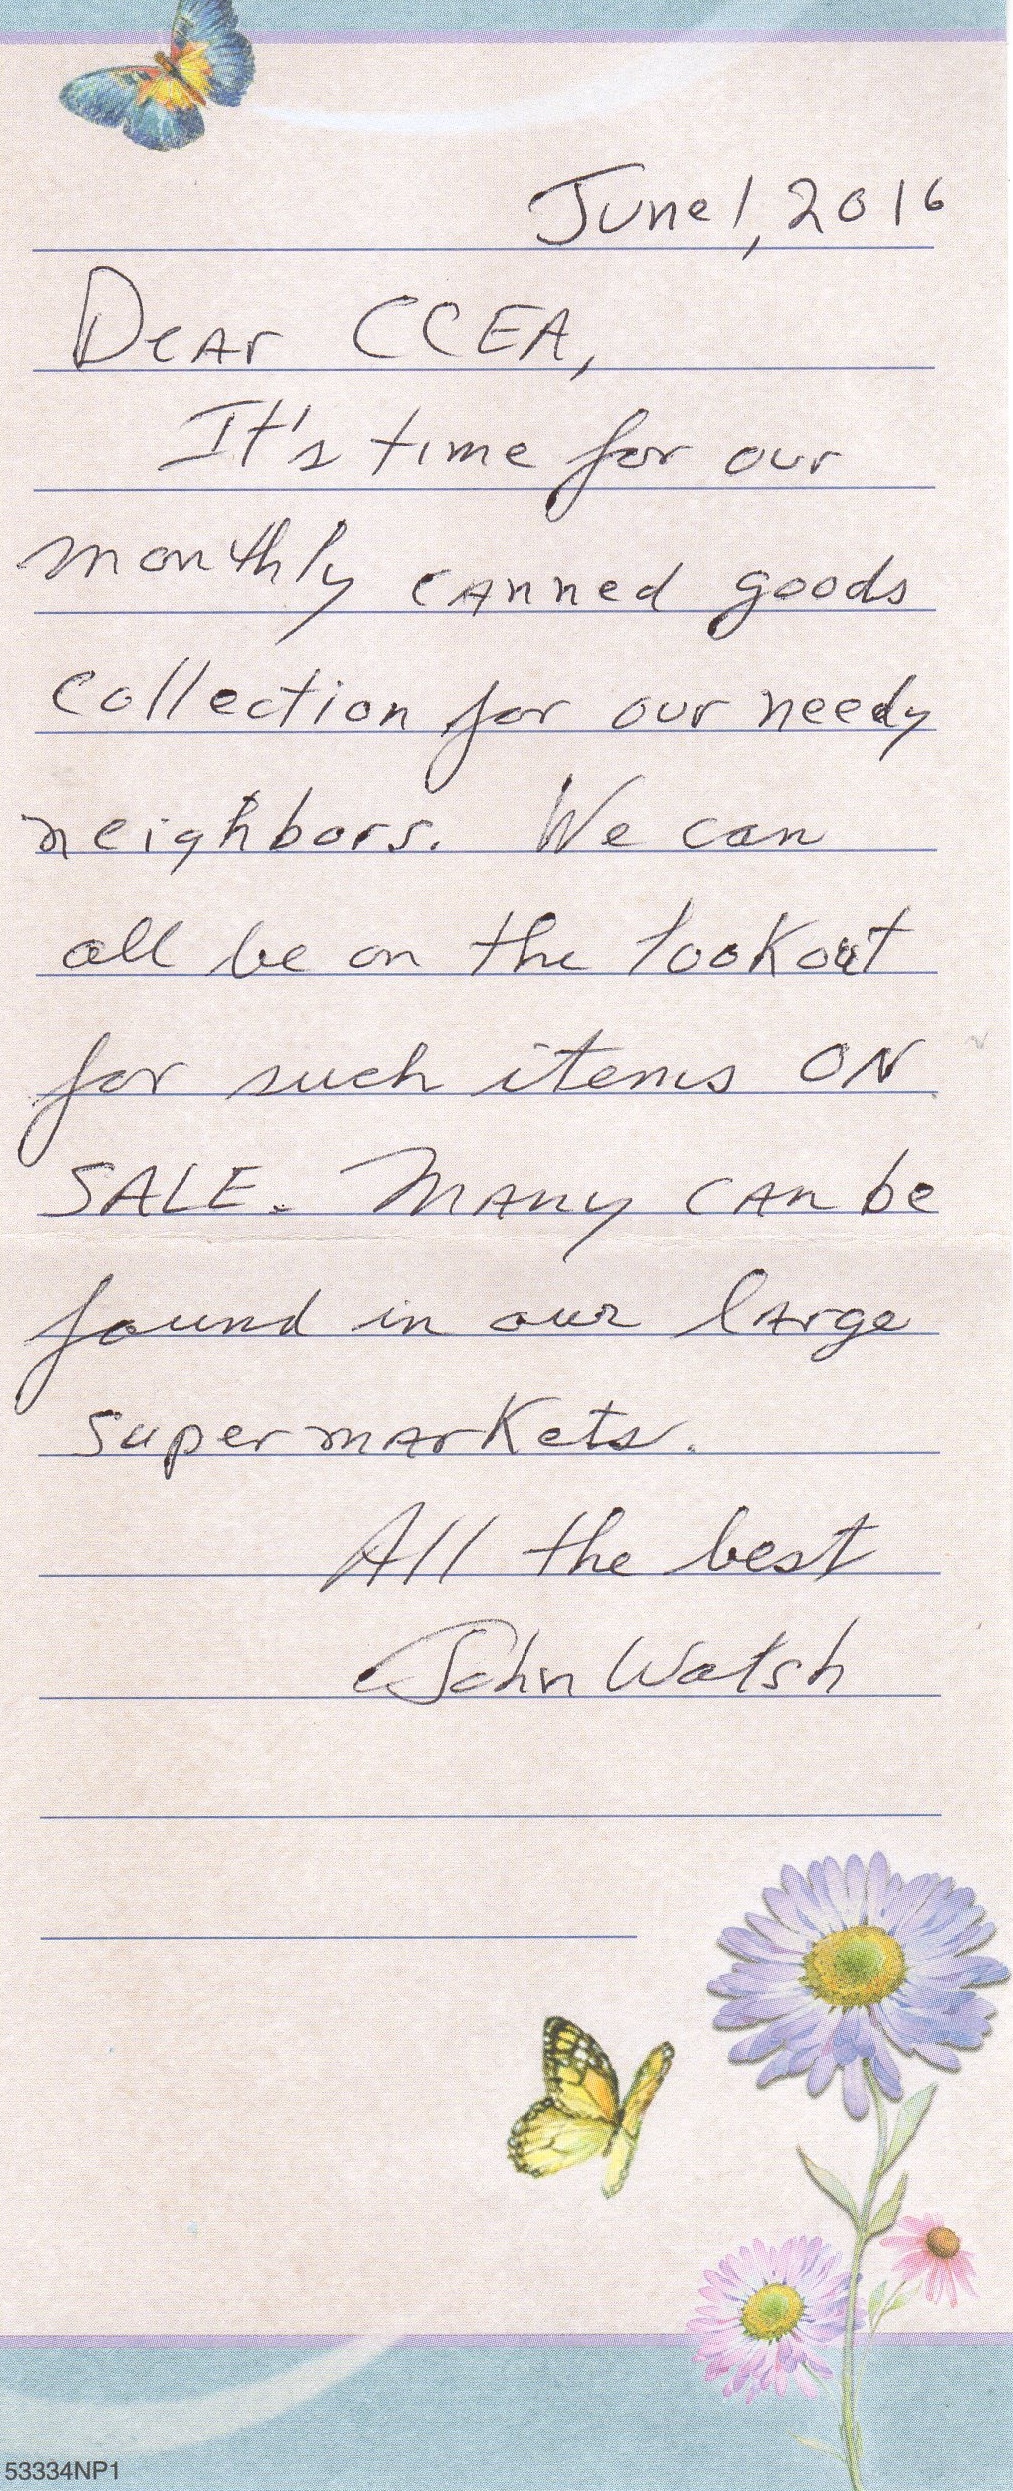 June 1, 2016
Dear CCEA,
It's time for our
monthly canned goods
collection for our needy
neighbors. We can
all be on the lookout
for such items ON
SALE. Many can be
found in our large
supermarkets.
All the best
John Walsh
53334NP1